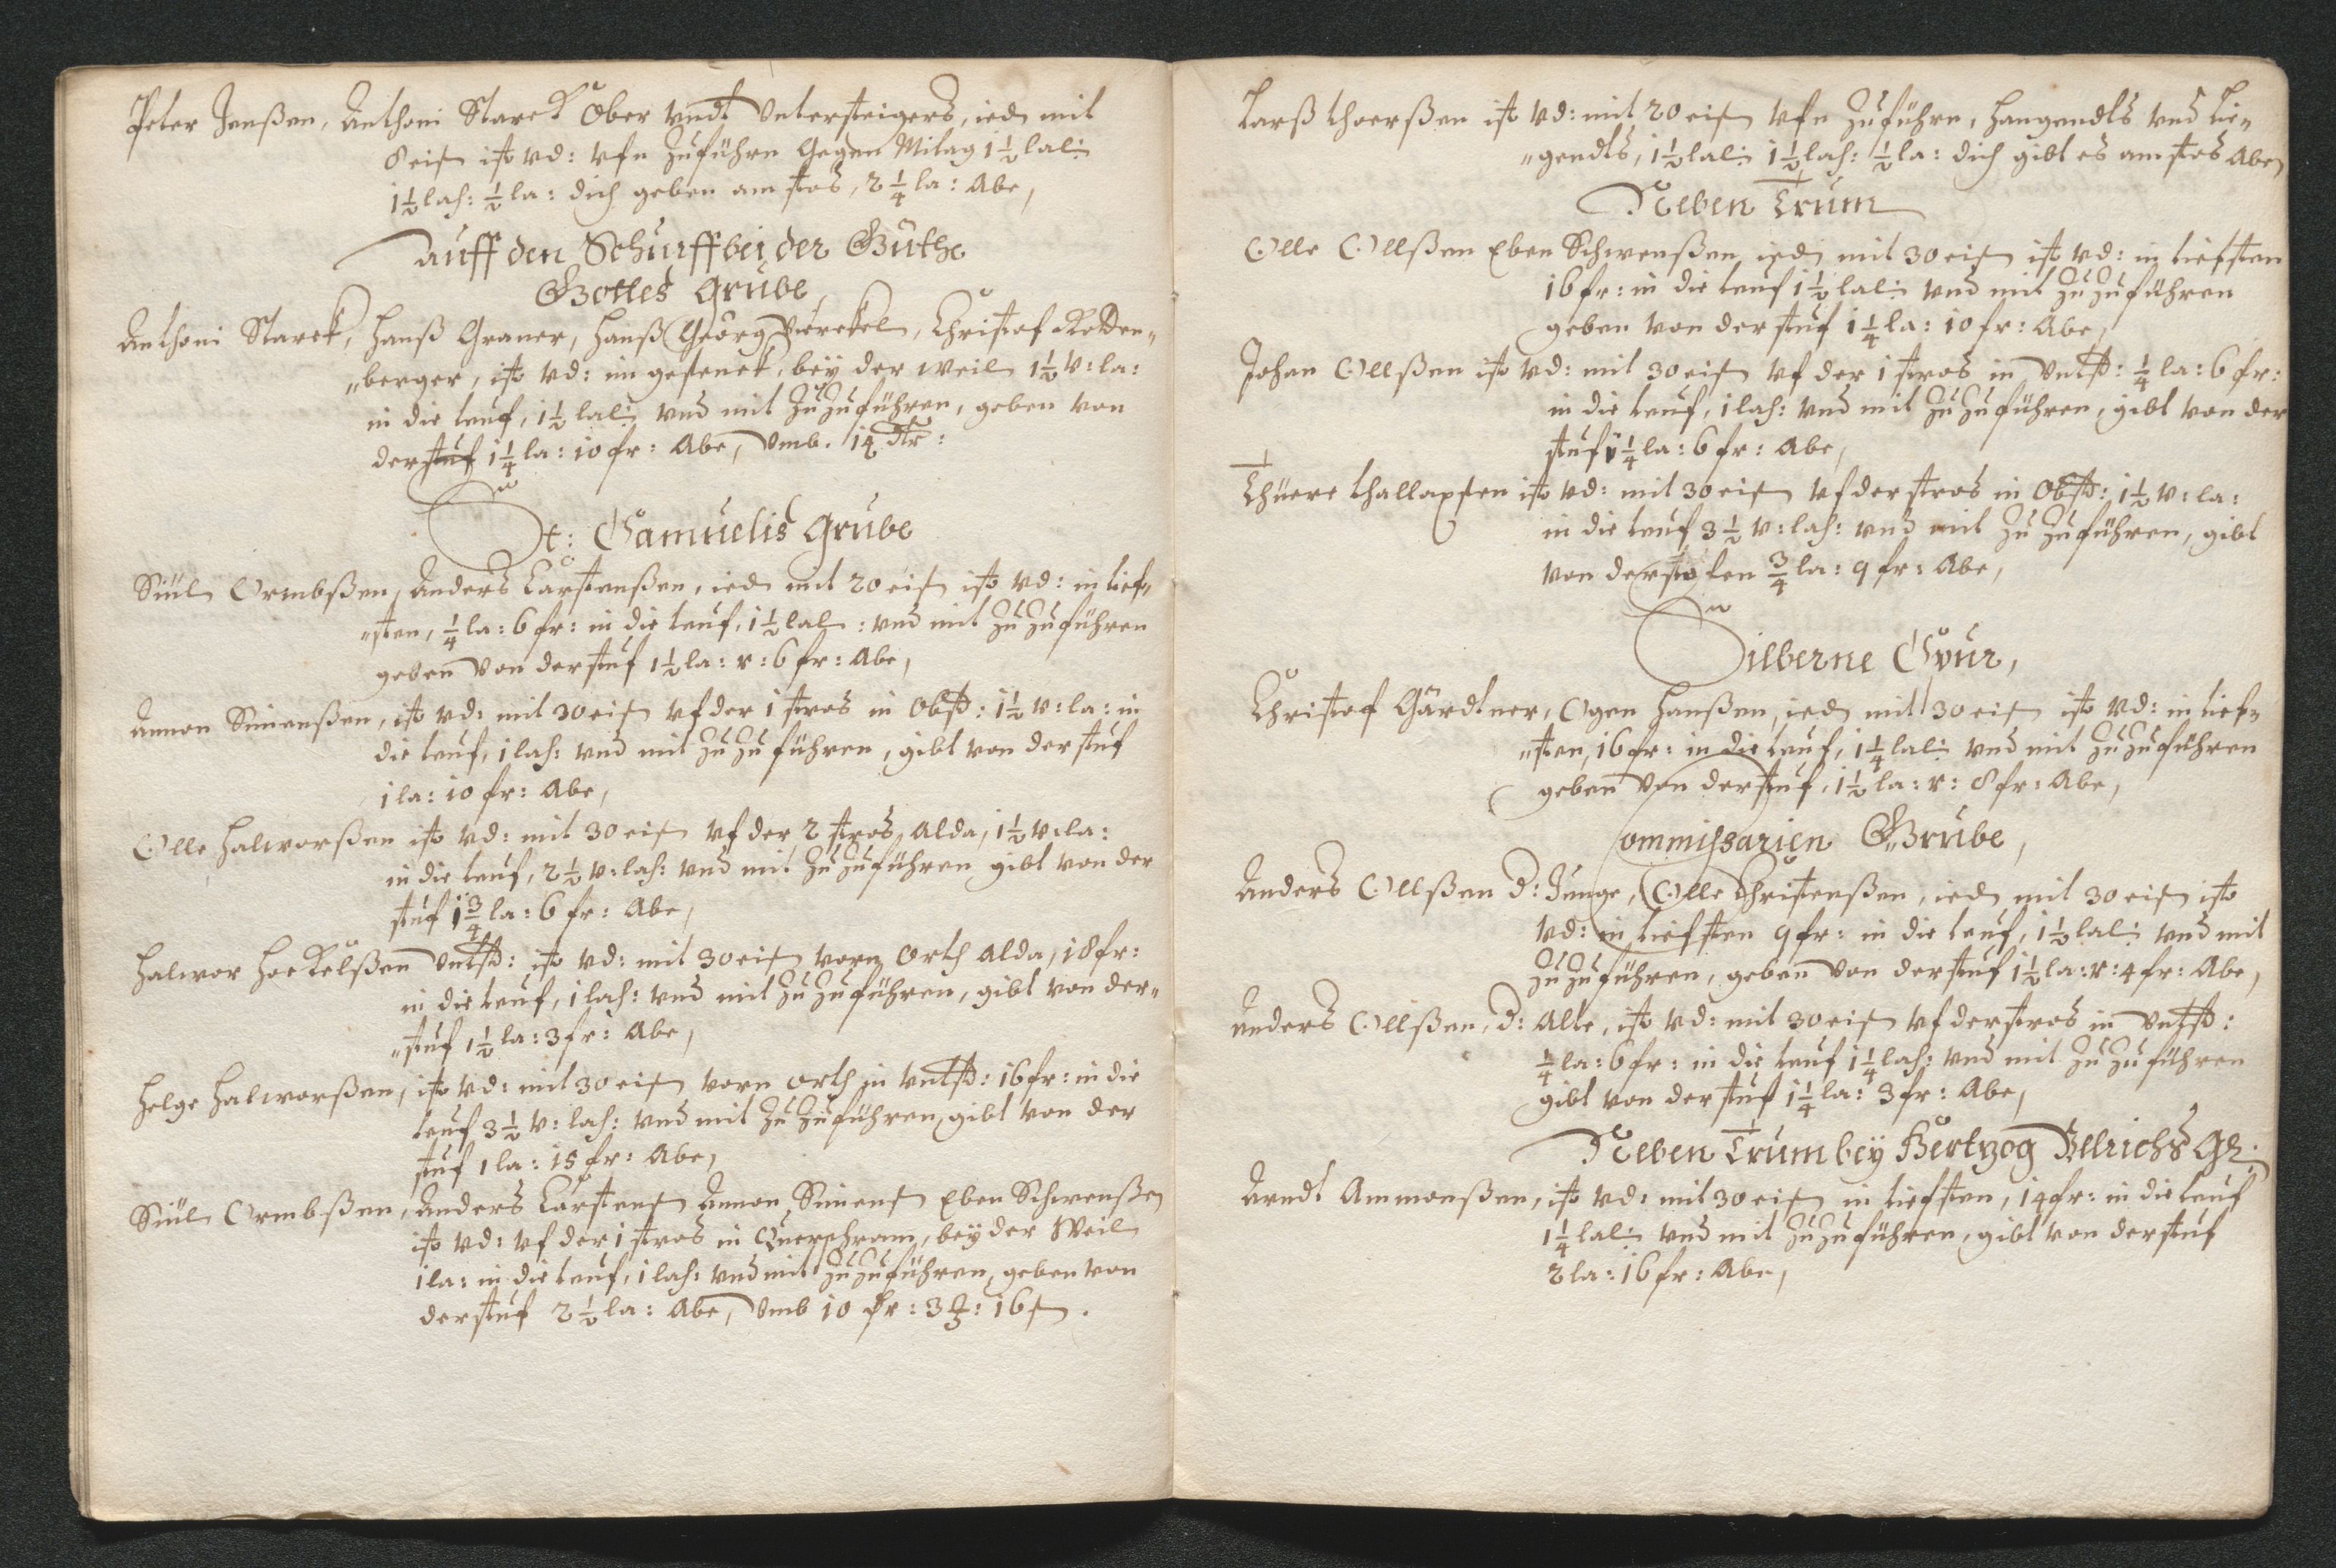 Peter Jenßen, Anthoni Starck Ober vndt Vntersteigers, ied mit
8 eis ist vd: vfn Zuführn Gegen Mitag 1½ lal:
1½ lah: ½ la: dich geben am stros, 2¼ la: Abe,
auff den Schurff bei der Guthe
Gottes Grube,
Anthoni Starck, Hanß Graner, Hanß Georg Vierckel, Christof Rotten„
„berger, ist vd: im gesenck, bey der weil 1½ v: la:
in die teuf, 1½ lal: vnd mit Zu Zuführen, geben von
der stuf 1¼ la: 10 fr: Abe, Vmb. 14 dlr:
St: Samuelis Grube
Siul Ormbßen, Anders Carstenßen, ied mit 20 eis ist vd: in tief„
„sten, ¼ la: 6 fr: in die teuf, 1½ lal: vnd mit Zu Zuführen
geben von der stuf 1½ la: r: 6 fr: Abe,
Amon Simenßen, ist vd: mit 30 eis vf der 1 stros in Obst: 1½ v: la: in
die teuf, 1 lah: vnd mit Zu Zu führen, gibt von der stuf
1 la: 10 fr: Abe,
Olle Halworßen ist vd: mit 30 eis vf der 2 stros, Alda, 1½ v: la:
in die teuf, 2½ v: lah: vnd mit Zu Zuführen gibt von der
stuf 1¾ la: 6 fr: Abe,
Halwor Hoekelßen Vntst: ist vd: mit 30 eis vorn Orth Alda, 18 fr:
in die teuf, 1 lah: vnd mit Zu Zuführen, gibt von der„
„stuf 1½ la: 3 fr: Abe,
Helge Halworßen, ist vd: mit 30 eis vorn Orth in vntst: 16 fr: in die
teuf 3½ v: lah: vnd mit Zu Zuführen, gibt von der
stuf 1 la: 15 fr: Abe,
Siul Ormbßen, Anders Carstens Amon Simens Eben Schwenßen
ist vd: vf der 1 stros in Querschram, bey der Weil
1 la: in die teuf, 1 lah: vnd mit Zu Zuführen, geben von
der stuf 2½ la: Abe, Vmb 10 fr: 3 16 s.
Larß Thoerßen ist vd: mit 20 eis vfn Zuführn, Hangendts vnd Lie„
„gendts, 1½ lal: 1½ lah: ½ la: dich gibt es am stros Abe,
Neben Trum
Olle Ollßen Eben Schwenßen ied mit 30 eis ist vd: in tiefsten
16 fr: in die teuf 1½ lal: vnd mit Zu Zuführen
geben von der stuf 1¼ la: 10 fr: Abe,
Johan Ollßen ist vd: mit 30 eis vf der 1 stros in Vntst: ¼ la: 6 fr:
in die teuf, 1 lah: vnd mit Zu Zuführen, gibt von der
stuf 1¼ la: 6 fr: Abe,
Thuere Thallaxsen ist vd: mit 30 eis vf der stros in Obst: 1½ v: la:
in die teuf 3½ v: lah: vnd mit Zu Zuführen, gibt
von der ¾ la: 9 fr: Abe,
Silberne Spur,
Christof Gärdtner, Ogen Hanßen, ied mit 30 eis ist vd: in tief„
„sten, 16 fr: in die teuf, 1¼ lal: vnd mit Zu Zuführen
geben von der stuf, 1½ la: r: 8 fr: Abe,
Commissarien Grube,
Anders Ollßen d: Junge, Olle Christenßen, ied mit 30 eis ist
vd: in tiefsten 9 fr: in die teuf, 1½ lal: vnd mit
Zu Zuführen, geben von der stuf 1½ la: r: 4 fr: Abe,
Anders Ollßen, d: Alte, ist vd: mit 30 eis vf der stros in Vntst:
¼ la: 6 fr: in die teuf 1¼ lah: vnd mit Zu Zuführen
gibt von der stuf 1¼ la: 3 fr: Abe,
Neben Trum bey Hertzog Vllrichs Gr:
Arndt Ammonßen, ist vd: mit 30 eis in tiefsten, 14 fr: in die teuf
1¼ lal: vnd mit Zu Zuführen, gibt von der stuf
2 la: 16 fr: Abe,